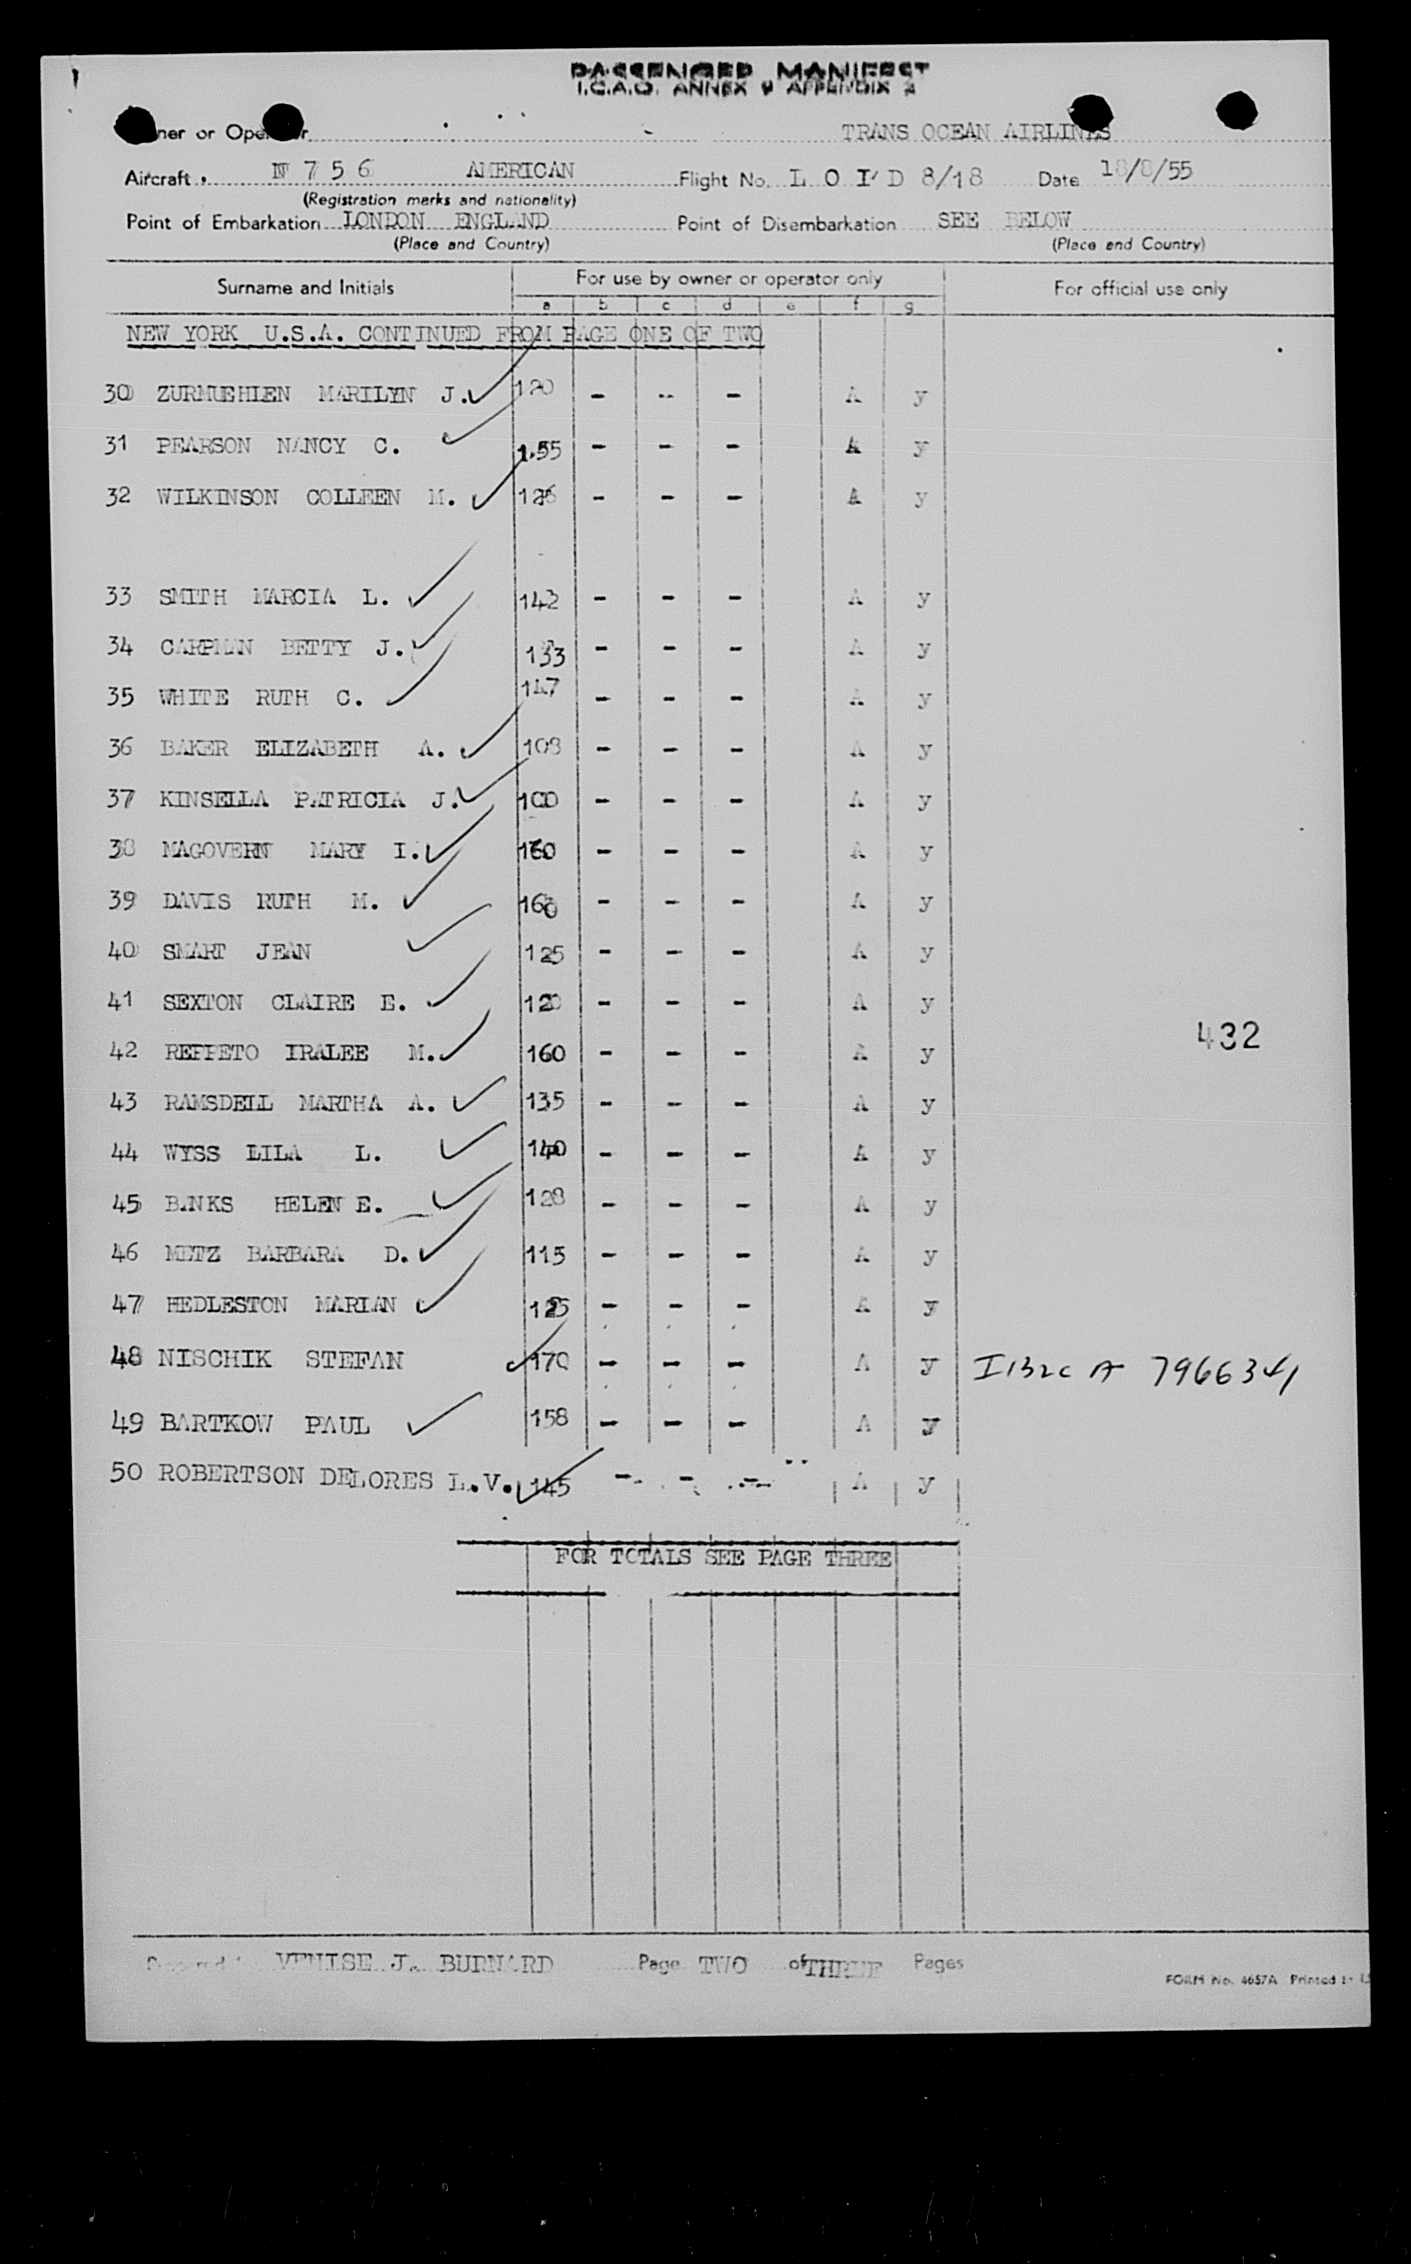 PASSENGER MANIFEST
I.C.A.O. ANNEX 9 APPENDIX
ner or Ope r TRANS OCEAN AIRLINES
Aircraft N 7 5 6 AMERICAN Flight No. L O I' D 8/18 Date 18/8/55
(Registration marks and nationality)
Point of Embarkation LONDON ENGLAND Point of Disembarkation SEE BELOW
(Place and Country) (Place and Country)
Surname and Initials For use by owner or operator only For official use only
a b c d e f g
NEW YORK U.S.A. CONTINUED FROM PAGE ONE OF TWO
30 ZURMUEHLEN MARILYN J. 120 - - - A y
31 PEARSON NANCY C. 155 - - - A y
32 WILKINSON COLLEEN M. 126 - - - A y
33 SMITH MARCIA L. 142 - - - A y
34 CARPMAN BETTY J. 133 - - - A y
35 WHITE RUTH C. 147 - - - A y
36 BAKER ELIZABETH A. 108 - - - A y
37 KINSELLA PATRICIA J. 100 - - - A y
38 MAGOVERN MARY I. 160 - - - A y
39 DAVIS RUTH M. 160 - - - A y
40 SMART JEAN 125 - - - A y
41 SEXTON CLAIRE E. 120 - - - A y
42 REPPETO IRALEE M. 160 - - - A y
43 RAMSDELL MARTHA A. 135 - - - A y
44 WYSS LILA L. 140 - - - A y
45 BANKS HELEN E. 128 - - - A y
46 METZ BARBARA D. 115 - - - A y
47 HEDLESTON MARIAN 125 - - - A y
48 NISCHIK STEFAN 170 - - - A y I132c A 7966341
49 BARTKOW PAUL 158 - - - A y
50 ROBERTSON DELORES L.V. 145 - - - A y
432
FOR TOTALS SEE PAGE THREE
VENISE J. BURNARD Page TWO of THREE Pages
FORM No. 4657A Printed in